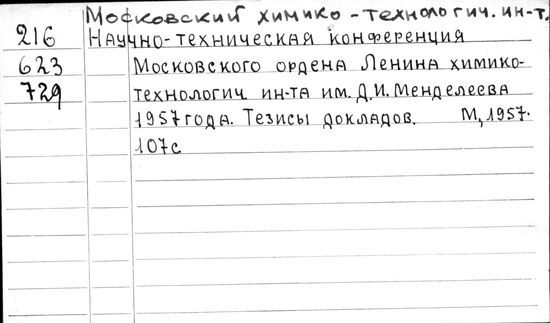 Московский химико-технологич. ин-т.
216 Научно-техническая конференция
623 Московского ордена Ленина химико-
729 технологич ин-та им. Д.И. Менделеева
1957 года. Тезисы докладов. М, 1957.
107с